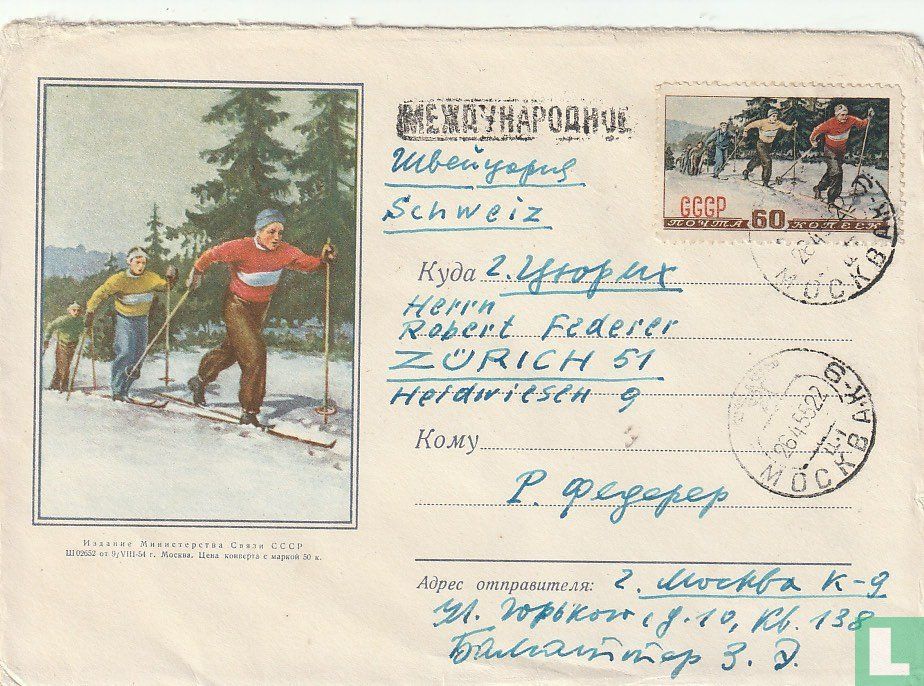 МЕЖДУНАРОДНОЕ
СССР
ПОЧТА 60 КОПЕЕК
Швейцария
Schweiz
Куда г. Цюрих
Herrn
Robert Federer
ZÜRICH 51
Heidwiesen 9
Кому
Р. Федерер
МОСКВА К-9
26455 22
МОСКВА К-9
Издание Министерства Связи СССР
Ш 02652 от 9/VIII-54 г. Москва. Цена конверта с маркой 50 к.
Адрес отправителя: г. Москва К-9
ул. Горького, д. 10, Кв. 138
З. Э.
L